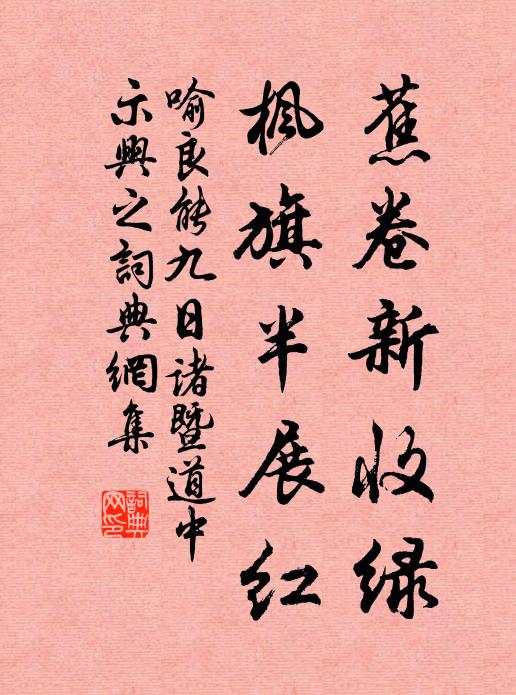 蕉卷新收绿
枫旗半展红
喻良能九日诸暨道中
示兴之词典网集
词典
网印